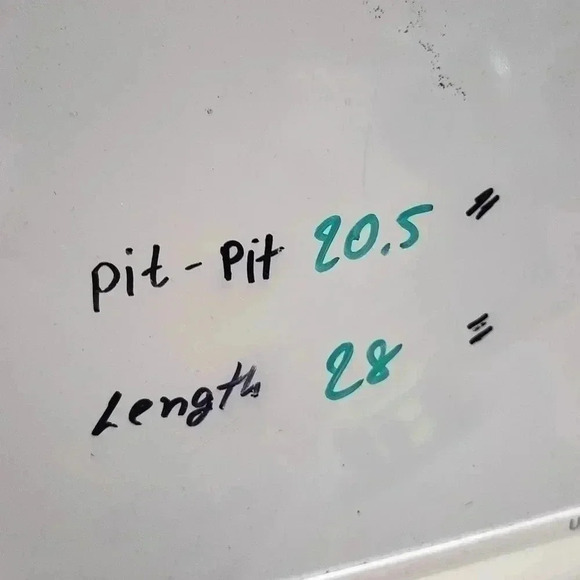 pit - pit 20.5 "
Length 28 "